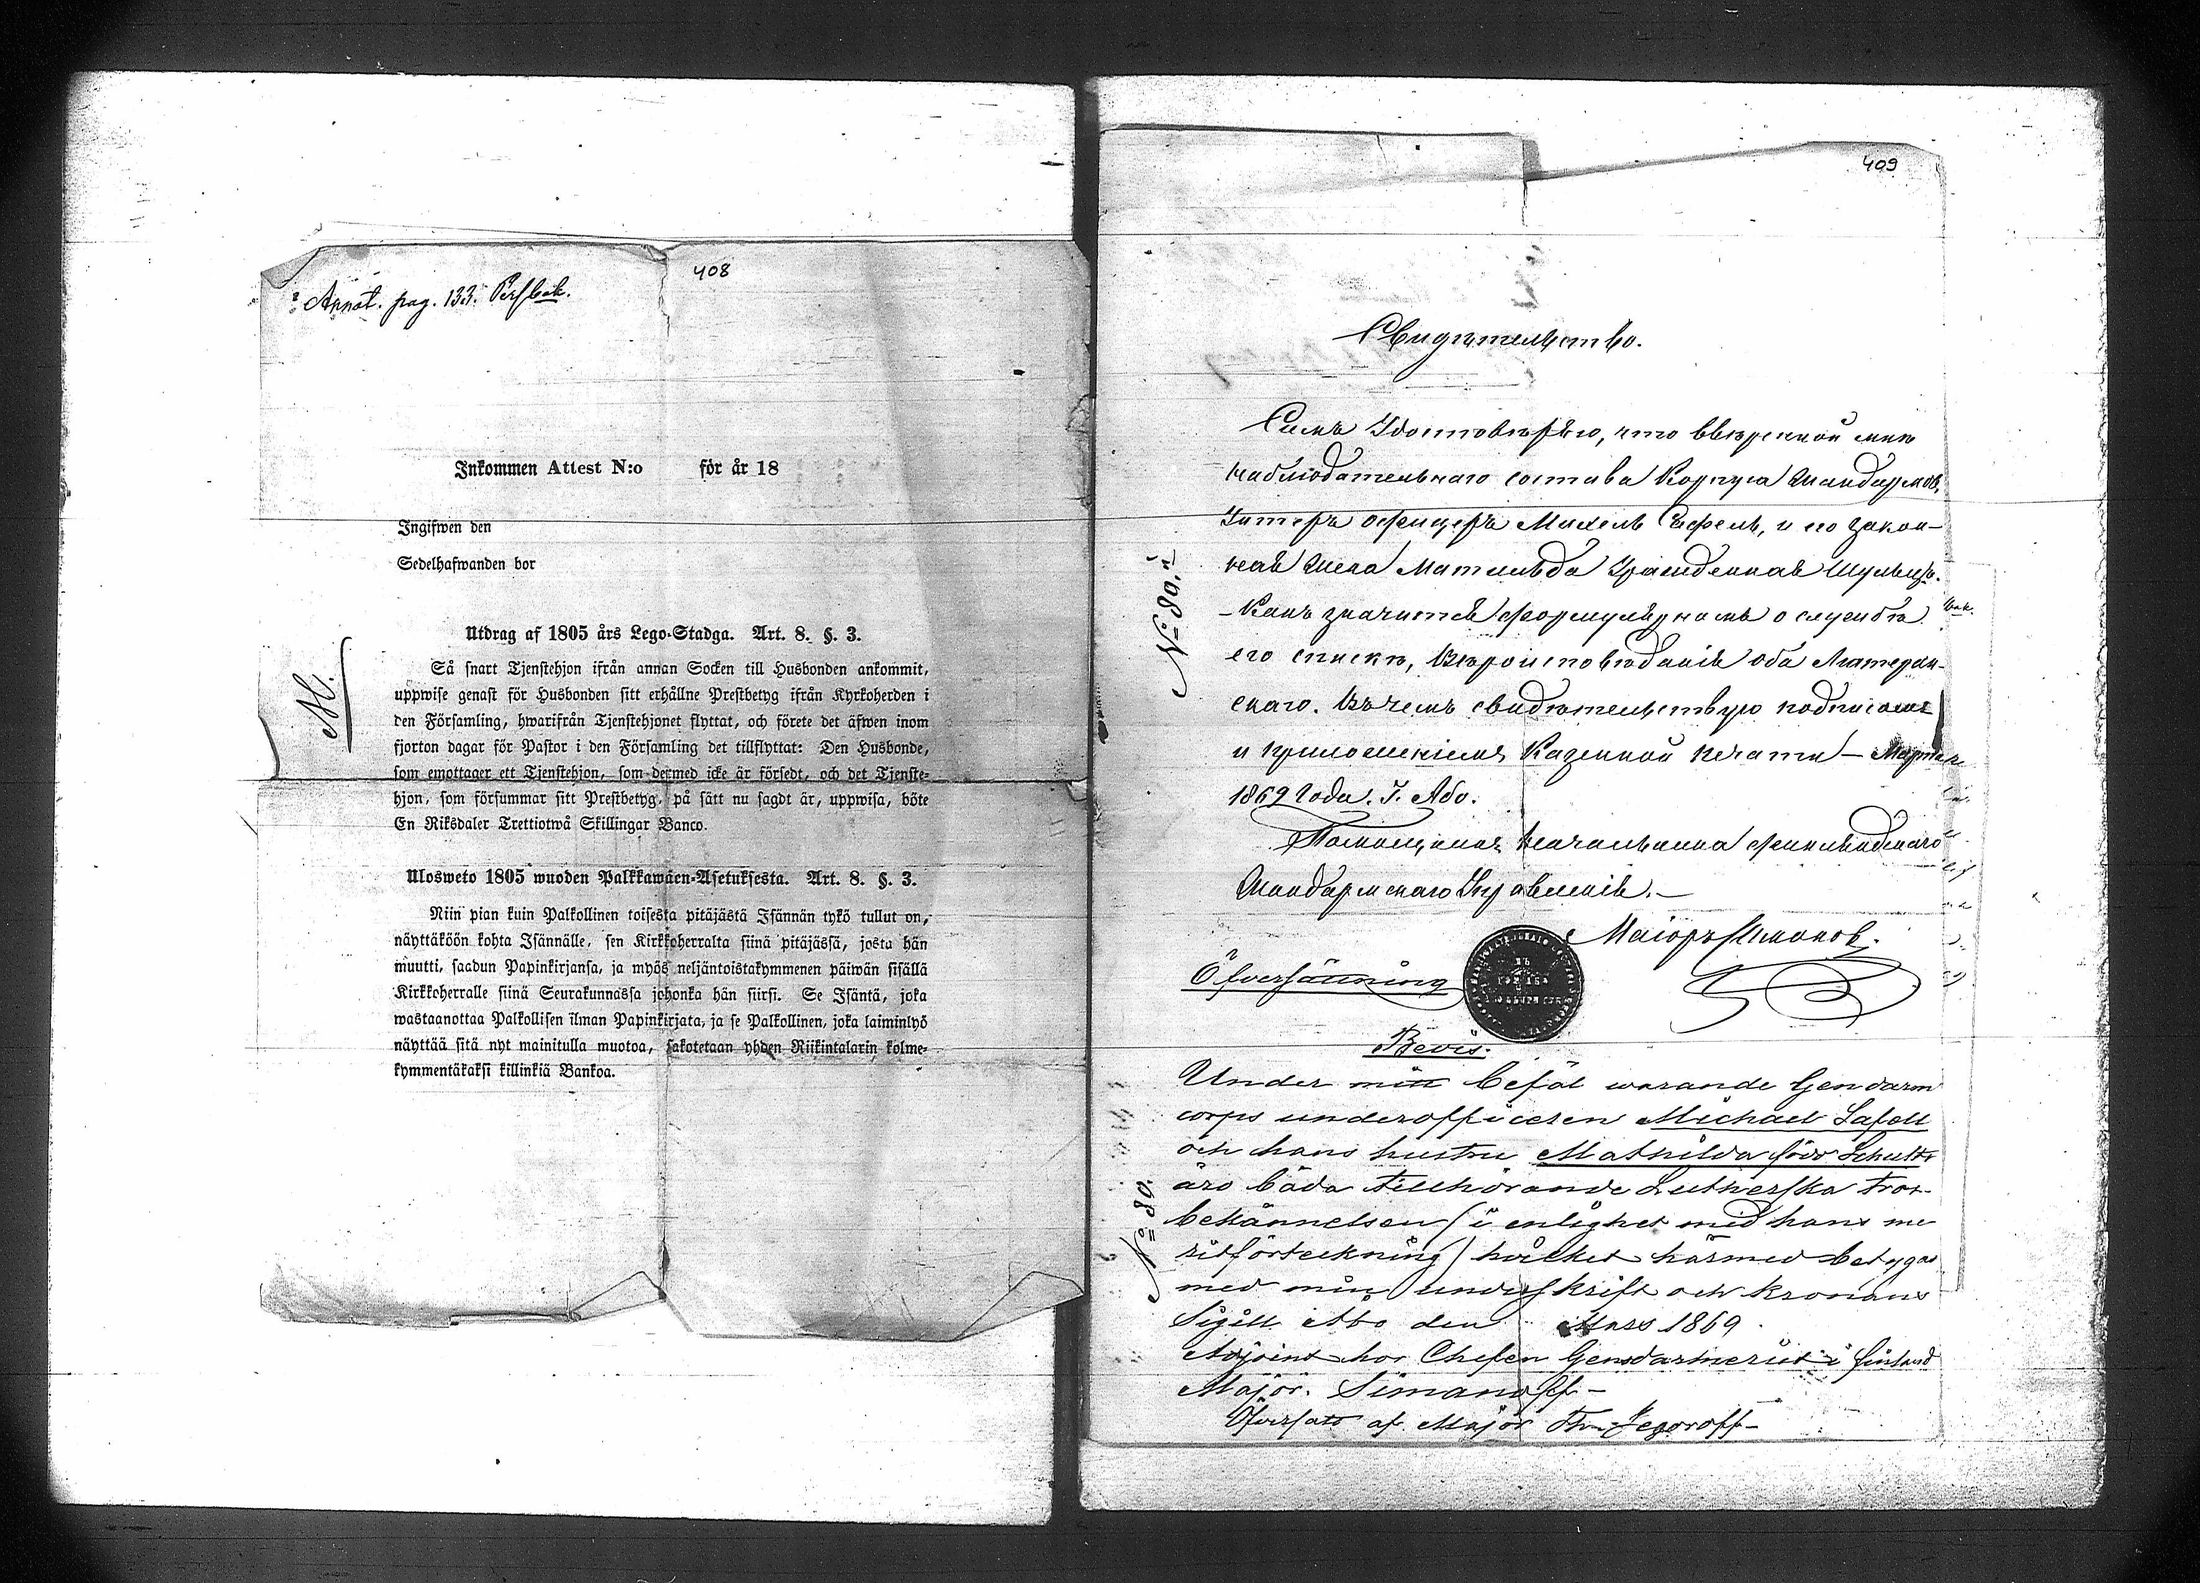 408
Annot. pag. 133. Persbok.
Inkommen Attest N:o för år 18
Ingifwen den
Sedelhafwanden bor
Utdrag af 1805 års Lego-Stadga. Art. 8. §. 3.
Så snart Tjenstehjon ifrån annan Socken till Husbonden ankommit,
uppwise genast för Husbonden sitt erhållne Prestbetyg ifrån Kyrkoherden i
den Församling, hwarifrån Tjenstehjonet flyttat, och förete det äfwen inom
fjorton dagar för Pastor i den Församling det tillflyttat: Den Husbonde,
som emottager ett Tjenstehjon, som dermed icke är försedt, och det Tjenste-
hjon, som försummar sitt Prestbetyg, på sätt nu sagdt är, uppwisa, böte
En Riksdaler Trettiotwå Skillingar Banco.
Ulosweto 1805 wuoden Palkkawäen-Asetuksesta. Art. 8. §. 3.
Niin pian kuin Palkollinen toisesta pitäjästä Isännän tykö tullut on,
näyttäköön kohta Isännälle, sen Kirkkoherralta siinä pitäjässä, josta hän
muutti, saadun Papinkirjansa, ja myös neljäntoistakymmenen päiwän sisällä
Kirkkoherralle siinä Seurakunnassa johonka hän siirsi. Se Isäntä, joka
wastaanottaa Palkollisen ilman Papinkirjata, ja se Palkollinen, joka laiminlyö
näyttää sitä nyt mainitulla muotoa, sakotetaan yhden Riikintalarin kolme-
kymmentäkaksi killinkiä Bankoa.
409
Свидѣтельство.
Симъ Удостовѣряю, что ввѣренной мнѣ
наблюдательнаго состава Корпуса Жандармовъ,
Унтеръ офицеръ Михель Сефель, и его закон-
ная Жена Матильда Урожденная Шульцъ.
- Какъ значится формулярномъ о службѣ
его спискѣ, Вѣроисповѣданія оба Лютеран-
скаго. Въ чемъ свидѣтельствую подписомъ
и приложеніемъ Казенной печати - Марта
1869 Года. Г. Або.
Помощникъ Начальника Финляндскаго
Жандармскаго Управленія. -
Маіоръ Симоновъ.
№ 80.
Öfversättning
Bevis.
Under min befäl warande Gendarm
corps underofficeren Michael Safell
och hans hustru Mathilda född Schultz
äro båda tillhörande Lutherska tros-
bekännelsen (i enlighet med hans me
ritförteckning) hvilket härmed betygas
med min underskrift och kronans
Sigill Åbo den Mars 1869.
Adjoint hos Chefen Gensdarmeriet i Finland
Major. Simanoff -
Öfversatt af Major Jegoroff -
№ 80.